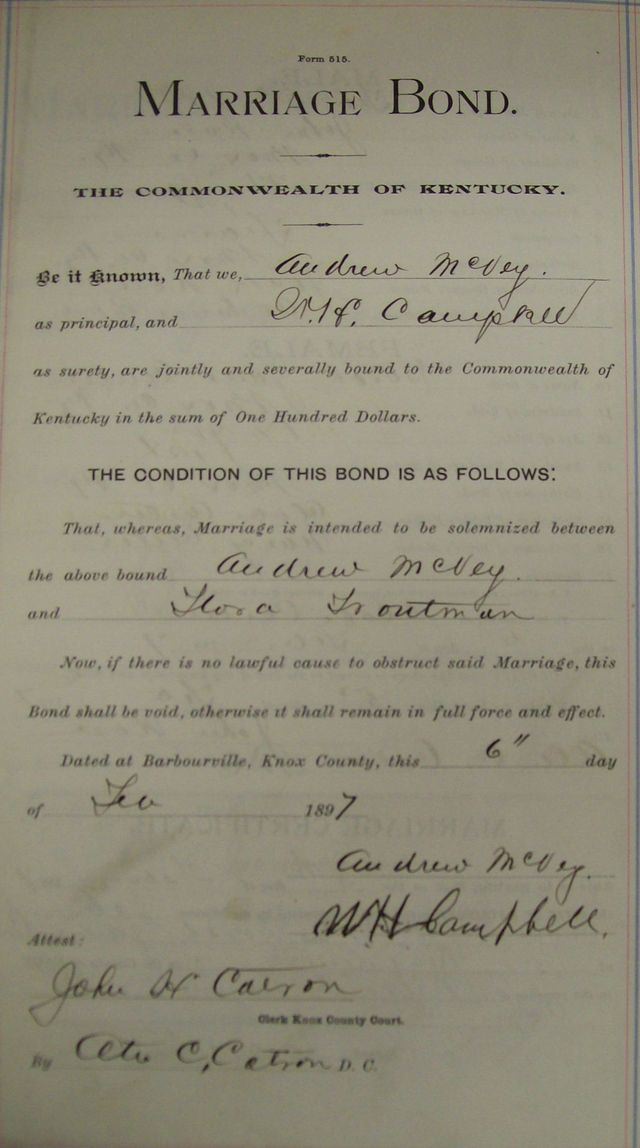 Form 515.
MARRIAGE BOND.
THE COMMONWEALTH OF KENTUCKY.
Be it Known, That we, Andrew McVey.
as principal, and W. H. Campbell
as surety, are jointly and severally bound to the Commonwealth of
Kentucky in the sum of One Hundred Dollars.
THE CONDITION OF THIS BOND IS AS FOLLOWS:
That, whereas, Marriage is intended to be solemnized between
the above bound Andrew McVey.
and Flora Troutman
Now, if there is no lawful cause to obstruct said Marriage, this
Bond shall be void, otherwise it shall remain in full force and effect.
Dated at Barbourville, Knox County, this 6" day
of Feb 1897
Andrew McVey.
WH Campbell.
Attest:
John H Catron
Clerk Knox County Court.
By C, Catron D. C.